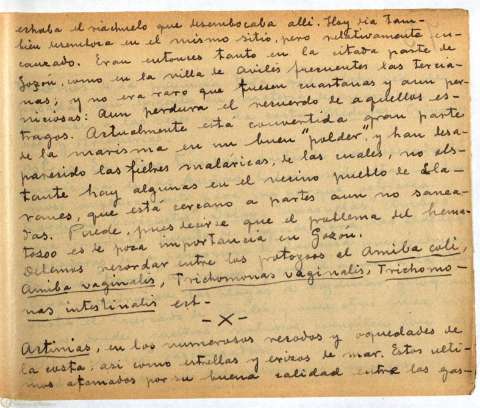 echaba el riachuelo que desembocaba alli. Hoy dia tam-
bien desemboca en el mismo sitio, pero relativamente en-
cauzado. Eran entonces tanto en la citada parte de
Gozón, como en la villa de Avilés frecuentes las tercia-
nas; y no era raro que fuesen cuartanas y aun per-
niciosas: Aun perdura el recuerdo de aquellos es-
tragos. Actualmente está convertida gran parte
de la marisma en un buen "polder", y han desa-
parecido las fiebres malaricas, de las cuales, no obs-
tante hay algunas en el vecino pueblo de Lla-
ranes, que está cercano a partes aun no sanea-
das. Puede, pues decirse que el problema del hema-
tozoo es de poca importancia en Gozón.
Debemos recordar entre los protozoos el Amiba coli,
Amiba vaginalis, Trichomonas vaginalis, Trichomo-
nas intestinalis est-
-X-
Actinias, en los numerosos recodos y oquedades de
la costa: asi como estrellas y erizos de mar. Estos ulti-
mos afamados por su buena calidad entre los gas-